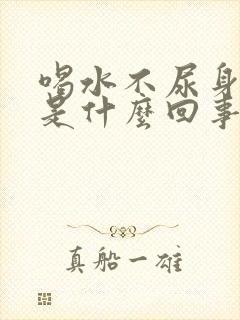 喝水不尿身
是什麼回事
真船一雄